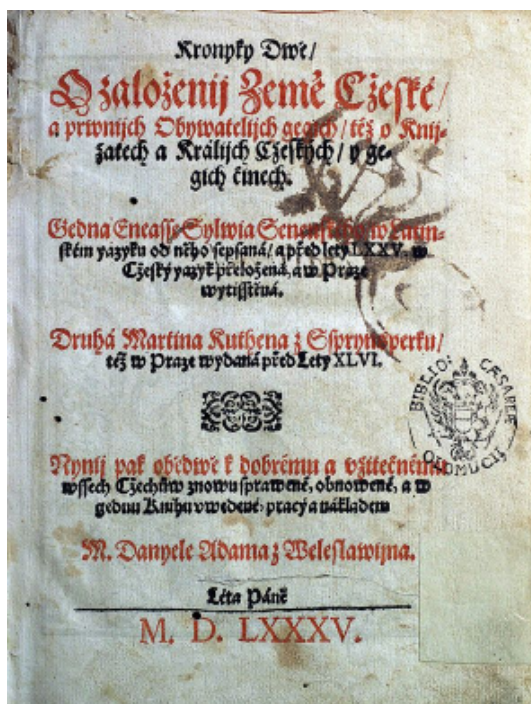 Kronyky Dwě/
O založenij Země Cžeské/
a prwnijch Obywatelijch gegich/ též o Knij-
žatech a Králijch Cžeských/ y ge-
gich činech.
Gedna Eneasse Sylwia Senenského w Latin-
ském yazyku od něho sepsaná/ a před lety LXXV. w
Cžeský yazyk přeložená, a w Praze
wytisstěná.
Druhá Martina Kuthena z Ssprynsperku/
též w Praze wydaná před Lety XLVI.
Nynij pak obědwě k dobrému a vžitečnému
wssech Cžechůw znowu sprawené, obnowené, a w
gednu Knihu vwedené, pracý a nákladem
M. Danyele Adama z Weleslawijna.
Léta Páně
M. D. LXXXV.
BIBLIO CÆSAREÆ
OLOMUCII